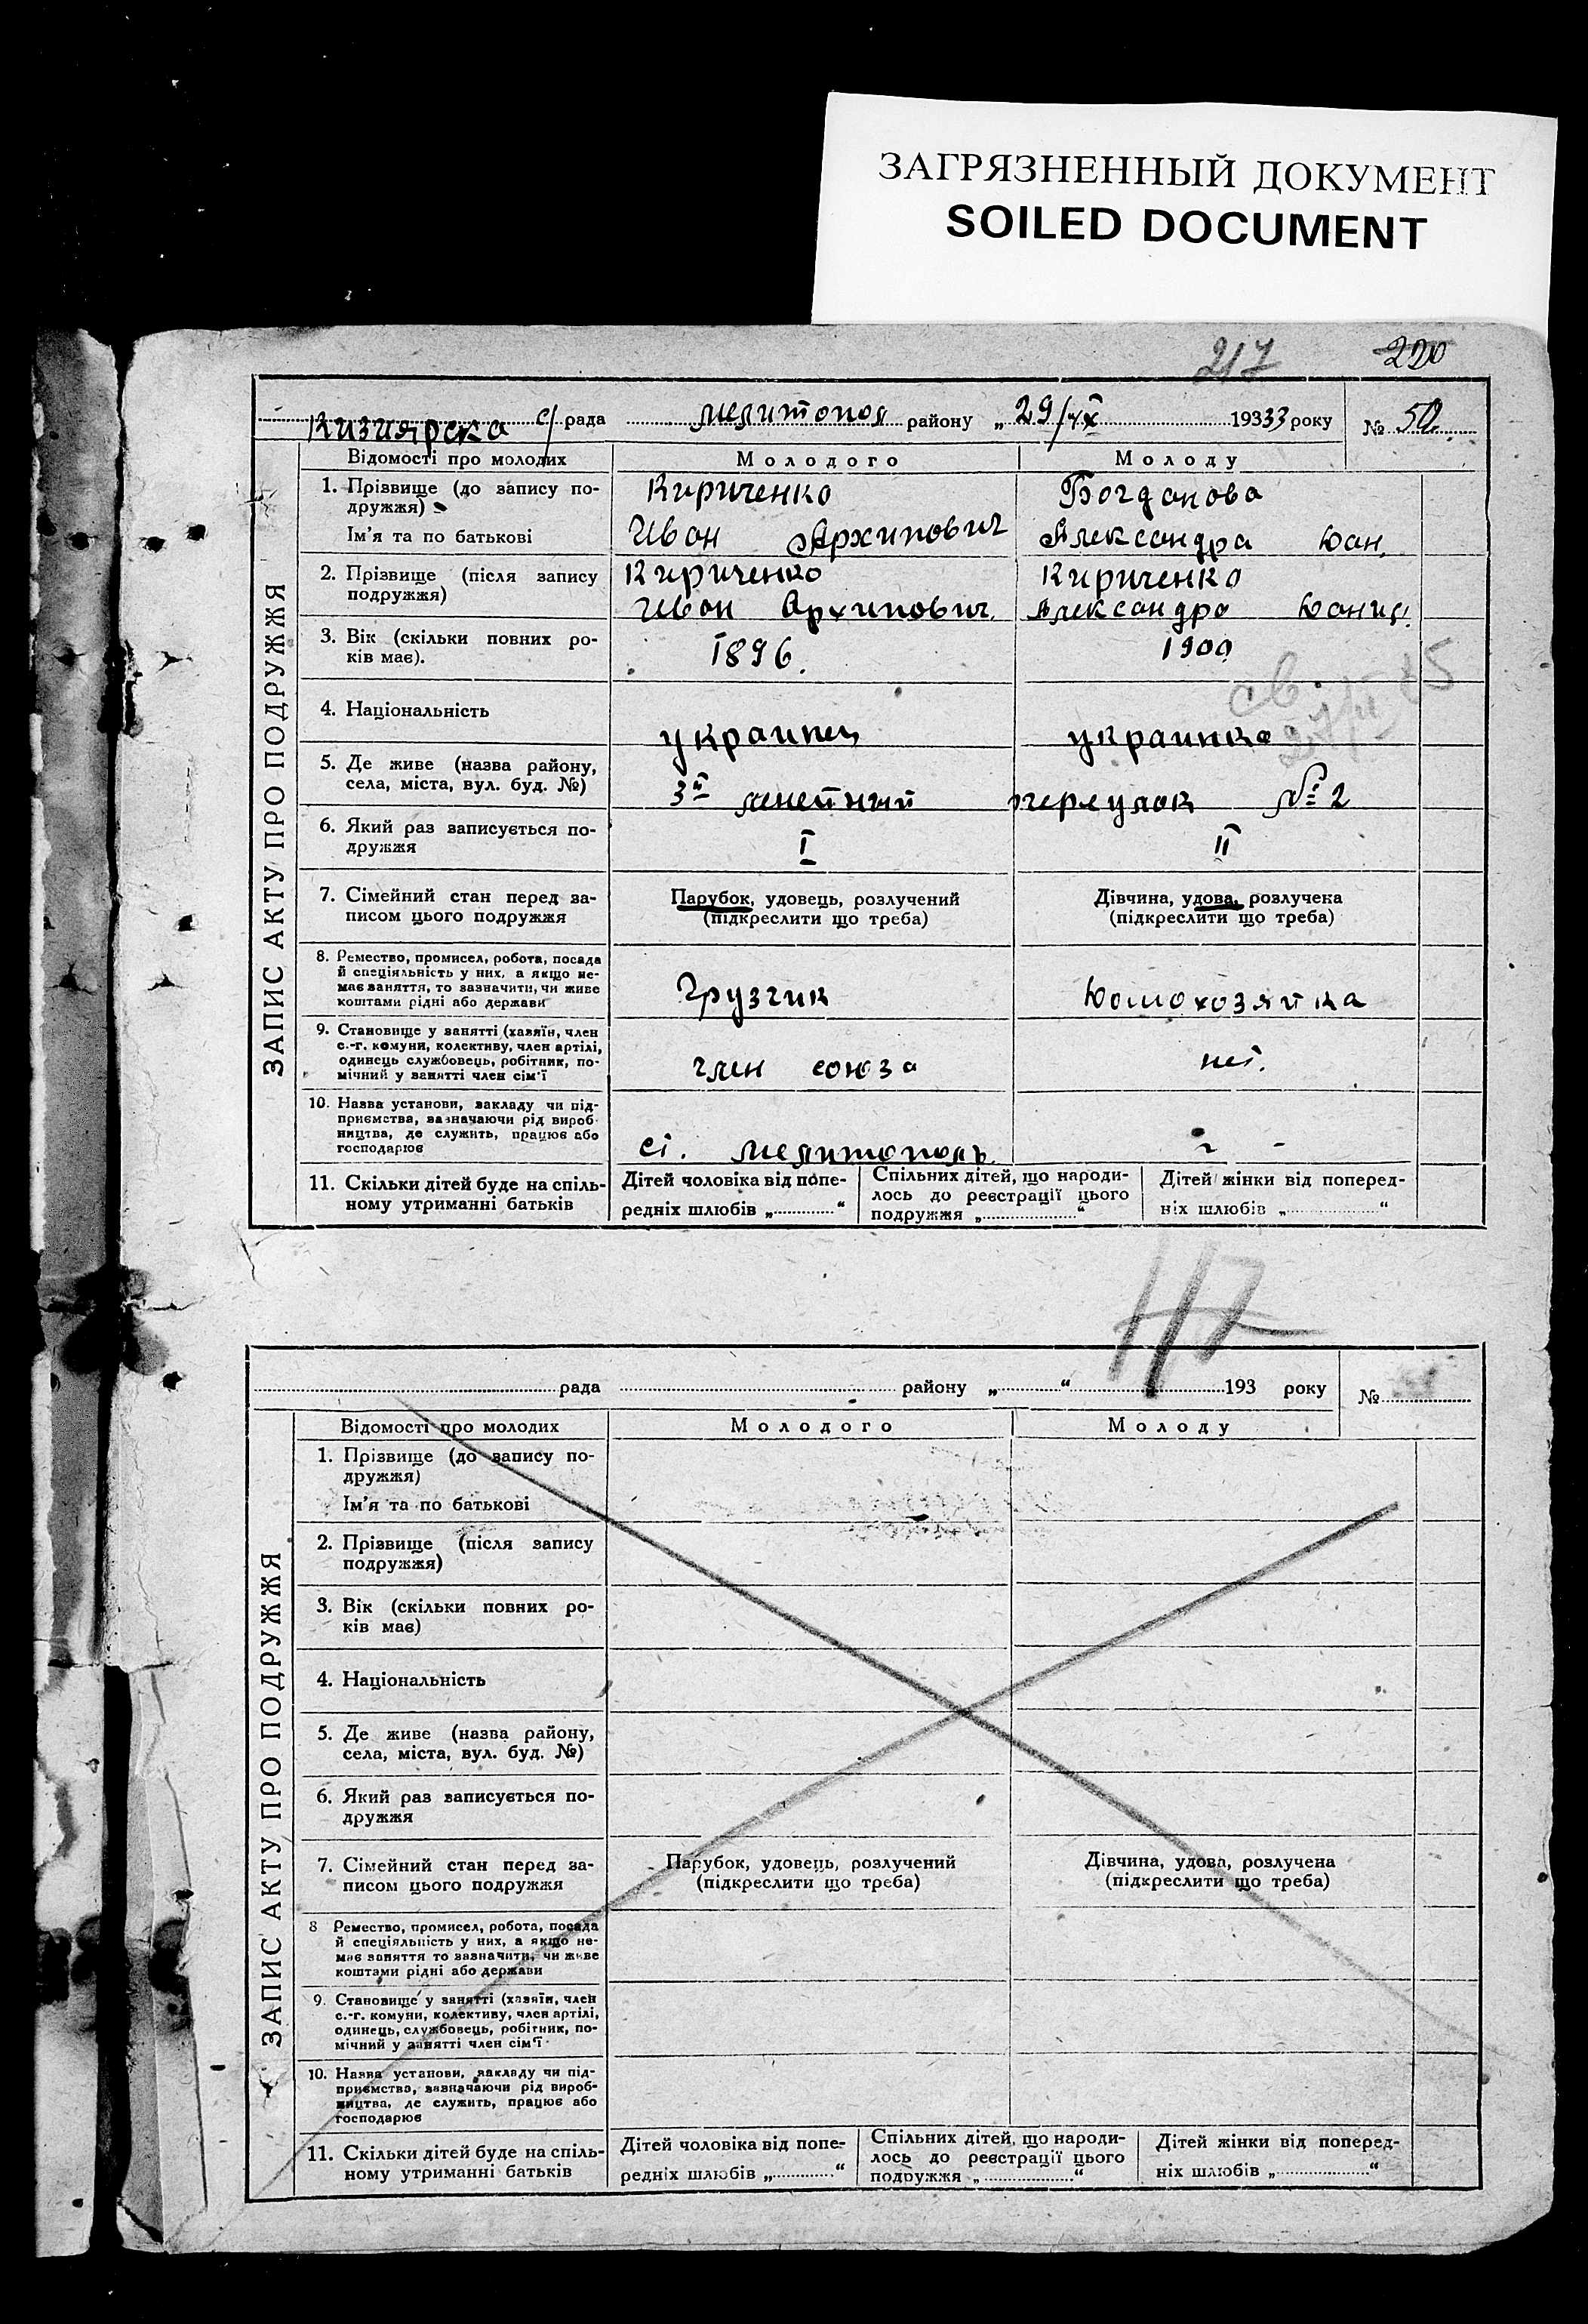 ЗАГРЯЗНЕННЫЙ ДОКУМЕНТ
SOILED DOCUMENT
217 220
Кизиярска с/рада мелитопол района „29/ХХ 19333 року № 50
Відомості про молодих Молодого Молоду
1. Прізвище (до запису по- Кириченко Богданова
дружжя)
Ім'я та по батькові Иван Архипович Александра Дан.
2. Прізвище (після запису Кириченко Кириченко
подружжя) Иван Архипович Александра Данил.
3. Вік (скільки повних ро- 1896. 1900
ків має).
4. Національність украинец украинка
5. Де живе (назва району,
села, міста, вул. буд. №) 3й линейный переулок № 2
6. Який раз записується по- I II
дружжя
7. Сімейний стан перед за- Парубок, удовець, розлучений Дівчина, удова, розлучена
писом цього подружжя (підкреслити що треба) (підкреслити що треба)
8. Ремество, промисел, робота, посада
й спеціяльність у них, а якщо не-
має заняття, то зазначити, чи живе Грузчик Домохозяйка
коштами рідні або держави
9. Становище у занятті (хазяїн, член
с.-г. комуни, колективу, член артілі,
одинець службовець, робітник, по- член союза нет.
мічний у занятті член сім'ї
10. Назва установи, закладу чи під-
приємства, зазначаючи рід вироб-
ництва, де служить, працює або
господарює ст. Мелитополь.
11. Скільки дітей буде на спіль- Дітей чоловіка від попе- Спільних дітей, що народи- Дітей жінки від поперед-
ному утриманні батьків редніх шлюбів „ “ лось до реєстрації цього ніх шлюбів „ “
подружжя „ “
ЗАПИС АКТУ ПРО ПОДРУЖЖЯ
117
рада району „ “ 193 року №
Відомості про молодих Молодого Молоду
1. Прізвище (до запису по-
дружжя)
Ім'я та по батькові
2. Прізвище (після запису
подружжя)
3. Вік (скільки повних ро-
ків має)
4. Національність
5. Де живе (назва району,
села, міста, вул. буд. №)
6. Який раз записується по-
дружжя
7. Сімейний стан перед за- Парубок, удовець, розлучений Дівчина, удова, розлучена
писом цього подружжя (підкреслити що треба) (підкреслити що треба)
8 Ремество, промисел, робота, посада
й спеціяльність у них, а якщо не-
має заняття то зазначити, чи живе
коштами рідні або держави
9. Становище у занятті (хазяїн, член
с.-г. комуни, колективу, член артілі,
одинець, службовець, робітник, по-
мічний у занятті член сім'ї
10. Назва установи, закладу чи під-
приємства, зазначаючи рід вироб-
ництва, де служить, працює або
господарює
11. Скільки дітей буде на спіль- Дітей чоловіка від попе- Спільних дітей, що народи- Дітей жінки від поперед-
ному утриманні батьків редніх шлюбів „ “ лось до реєстрації цього ніх шлюбів „ “
подружжя „ “
ЗАПИС АКТУ ПРО ПОДРУЖЖЯ